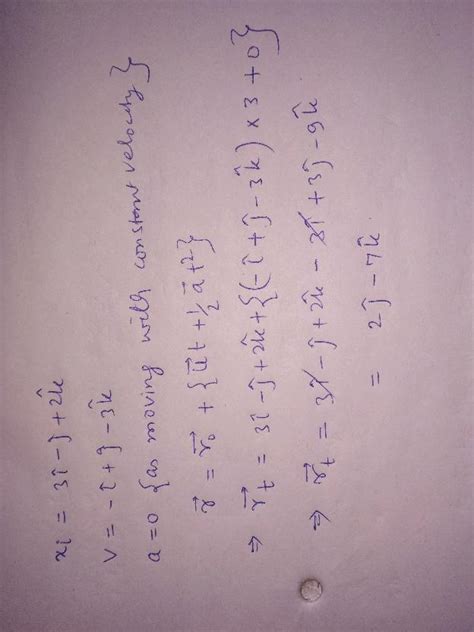 xi = 3î - ĵ + 2k̂
v = -î + ĵ - 3k̂
a = 0 {as moving with constant velocity}
r⃗ = r⃗₀ + {u⃗t + 1/2 a⃗t²}
⇒ r⃗t = 3î - ĵ + 2k̂ + {(-î + ĵ - 3k̂) × 3 + 0}
⇒ r⃗t = 3î - ĵ + 2k̂ - 3î + 3ĵ - 9k̂
= 2ĵ - 7k̂